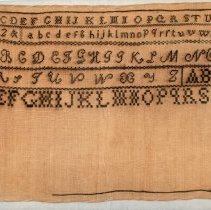 CDEFGHIJKLMNOPQRSTU
Z& abcdefghijklmnopqrstuvw
BCDEFGHIJKLM
STUVWXYZ AB
EFGHIJKLMNOPQRS